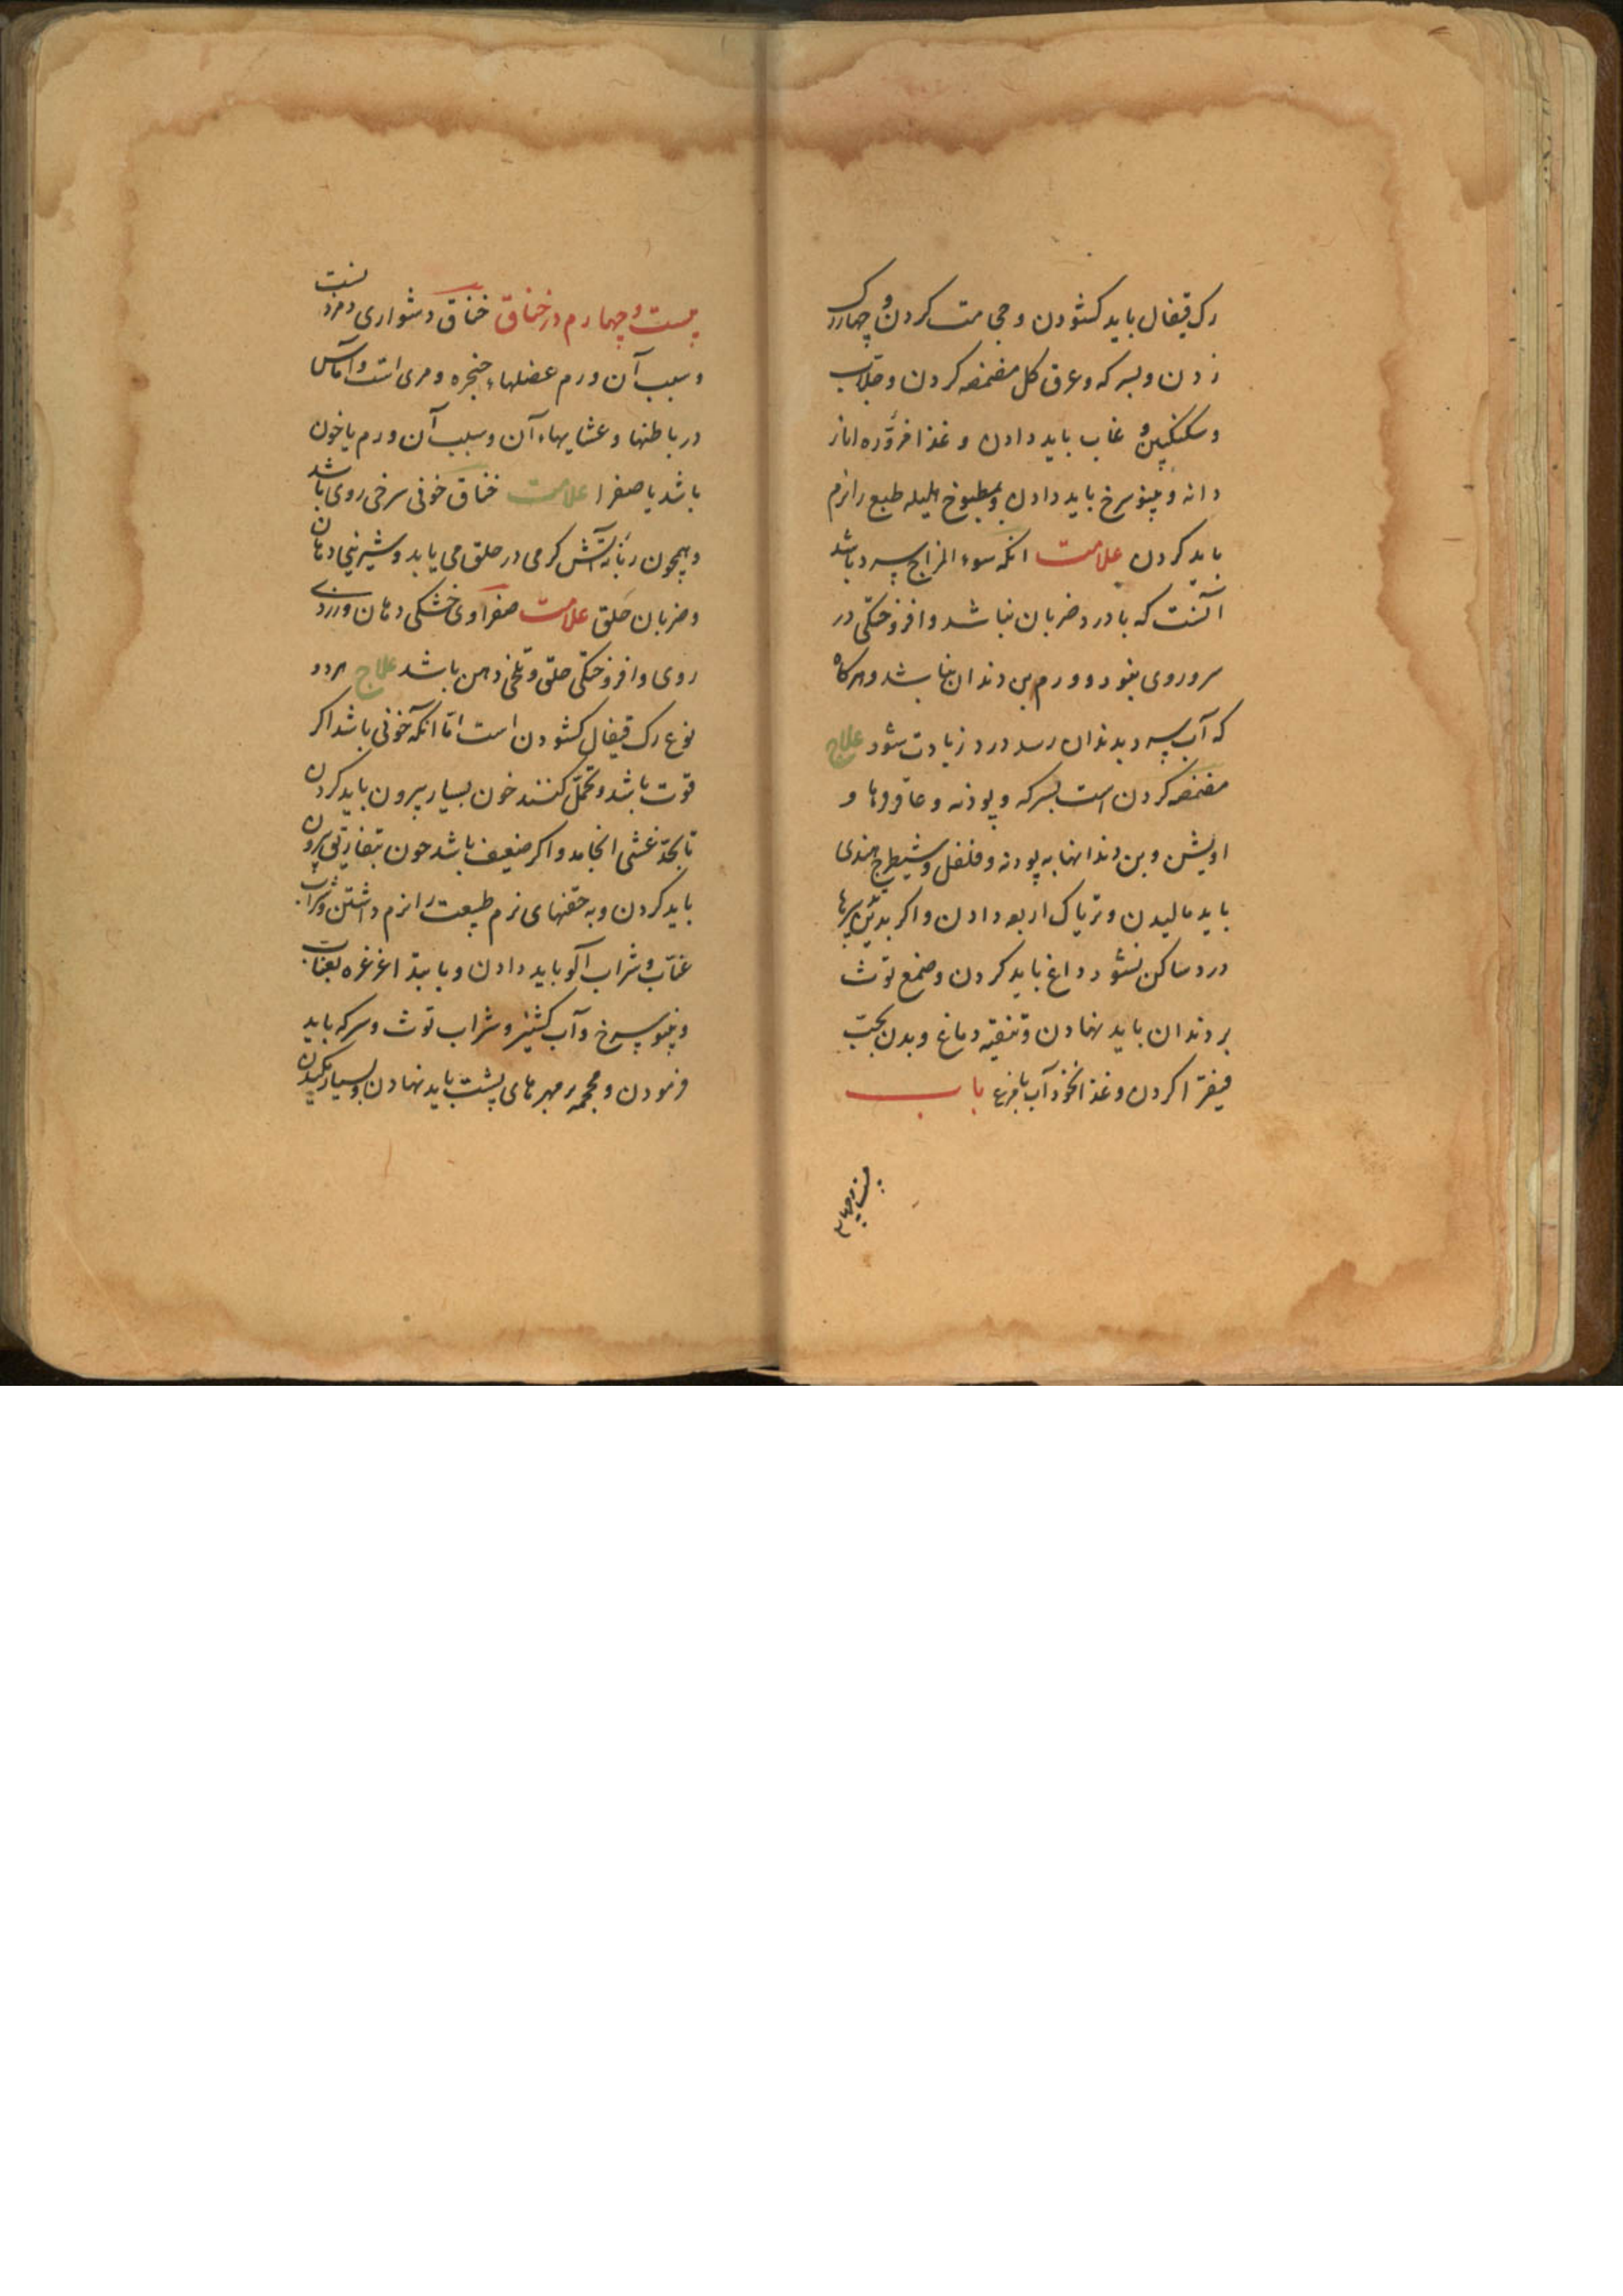 رک قیفال باید کشودن و حجامت کردن و چهاررک
زدن و بسرکه و عرق کل مضمضه کردن و جلاب
و سکنکبین و عناب باید دادن و غذا مزوره انار
دانه و مینو سرخ باید دادن و بمطبوخ هلیله طبع را نرم
باید کردن علامت انکه سوء المزاج سرد باشد
آنست که با درد ضربان نباشد و افروختکی در
سر و روی نبود و ورم بن دندان نباشد و هرکاه
که آب سرد بدندان رسد درد زیادت شود علاج
مضمضه کردن است بسرکه و پودنه و عاقرقرحا و
اویشن و بن دندانها به پودنه و فلفل و شیطرج هندی
باید مالیدن و تریاک اربعه دادن و اکر بدین
درد ساکن نشود داغ باید کردن و صمغ توث
بر دندان باید نهادن و تنقیه دماغ و بدن بحب
فیقرا کردن و غذا نخودآب با باب
بیست و چهارم
بیست و چهارم در خناق خناق دشواری دم زدنست
و سبب آن ورم عضلهاء حنجره و مری است و آماس
در باطنها و غشایهاء آن و سبب آن ورم یا خون
باشد یا صفرا علامت خناق خونی سرخی روی باشد
و همچون زبانه آتش کرمی در حلق می یابد و شیرینی دهان
و ضربان حلق علامت صفراوی خشکی دهان و زردی
روی و افروختکی حلق و تلخی دهن باشد علاج هر دو
نوع رک قیفال کشودن است امّا انکه خونی باشد اکر
قوت باشد و تحمّل کنند خون بسیار بیرون باید کردن
تا بحدّ غشی انجامد و اکر ضعیف باشد خون بتفاریق بیرون
باید کردن و به حقنهای نرم طبیعت را نرم داشتن و شراب
عنّاب و شراب آلو باید دادن و بابتدا غرغره بعناب
و مینو سرخ و آب کشنیز و شراب توث و سرکه باید
فرمودن و محجمه بر مهرهای پشت باید نهادن و بسیار مکیدن